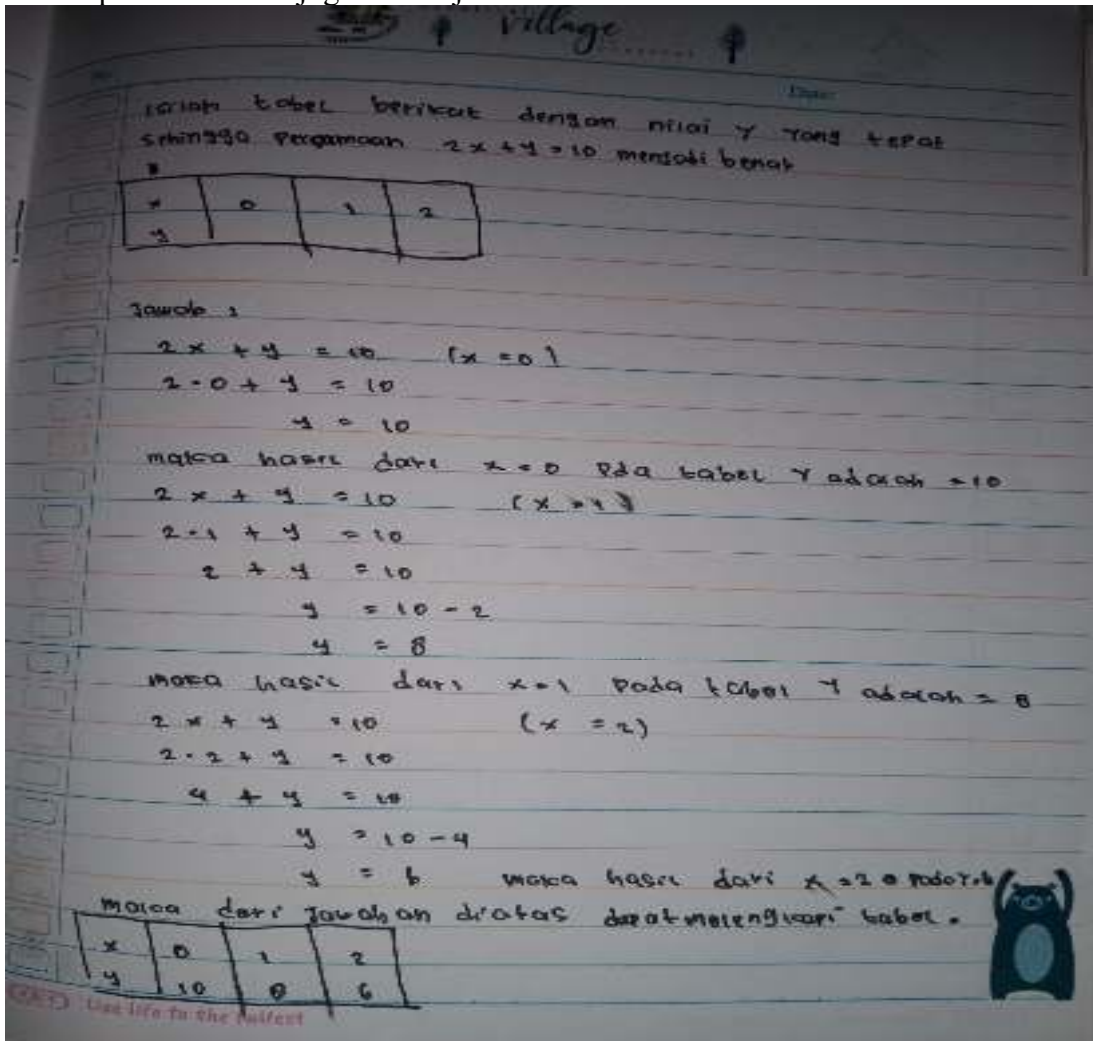 village
isilah tabel berikut dengan nilai y yang tepat
sehingga persamaan 2x + y = 10 menjadi benar
x 0 1 2
y
Jawab :
2x + y = 10 (x = 0)
2 . 0 + y = 10
y = 10
maka hasil dari x = 0 pda tabel Y adalah = 10
2x + y = 10 (x = 1)
2 . 1 + y = 10
2 + y = 10
y = 10 - 2
y = 8
maka hasil dari x = 1 pada tabel Y adalah = 8
2x + y = 10 (x = 2)
2 . 2 + y = 10
4 + y = 10
y = 10 - 4
y = 6 maka hasil dari x = 2 pada Y.6
maka dari jawaban diatas dapat melengkapi tabel .
x 0 1 2
y 10 8 6
life to the fullest